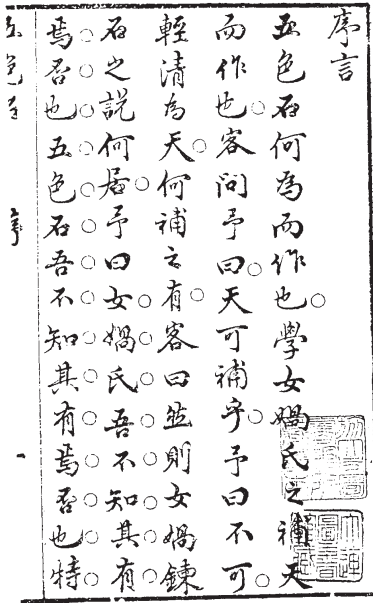 序言
五色石何為而作也學女媧氏之補天
而作也客問予曰天可補乎予曰不可
輕清為天何補之有客曰然則女媧鍊
石之說何居予曰女媧氏吾不知其有
焉否也五色石吾不知其有焉否也特
五色石
序